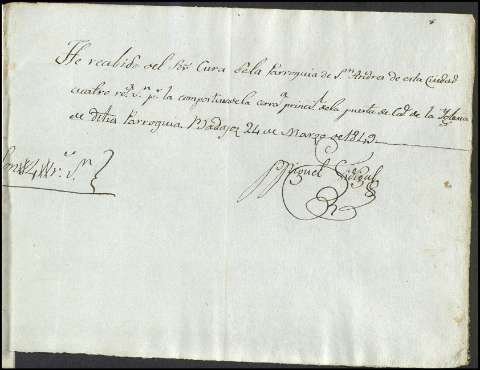 He recibido del Sor Cura de la Parroquia de Sn Andres de esta Ciudad
cuatro rs vn pr la compostura de la cerra princl de la puerta de de la Yglesia
de dicha Parroquia. Badajoz 24 de Marzo de 1849
Son 4 rs vn
Miguel